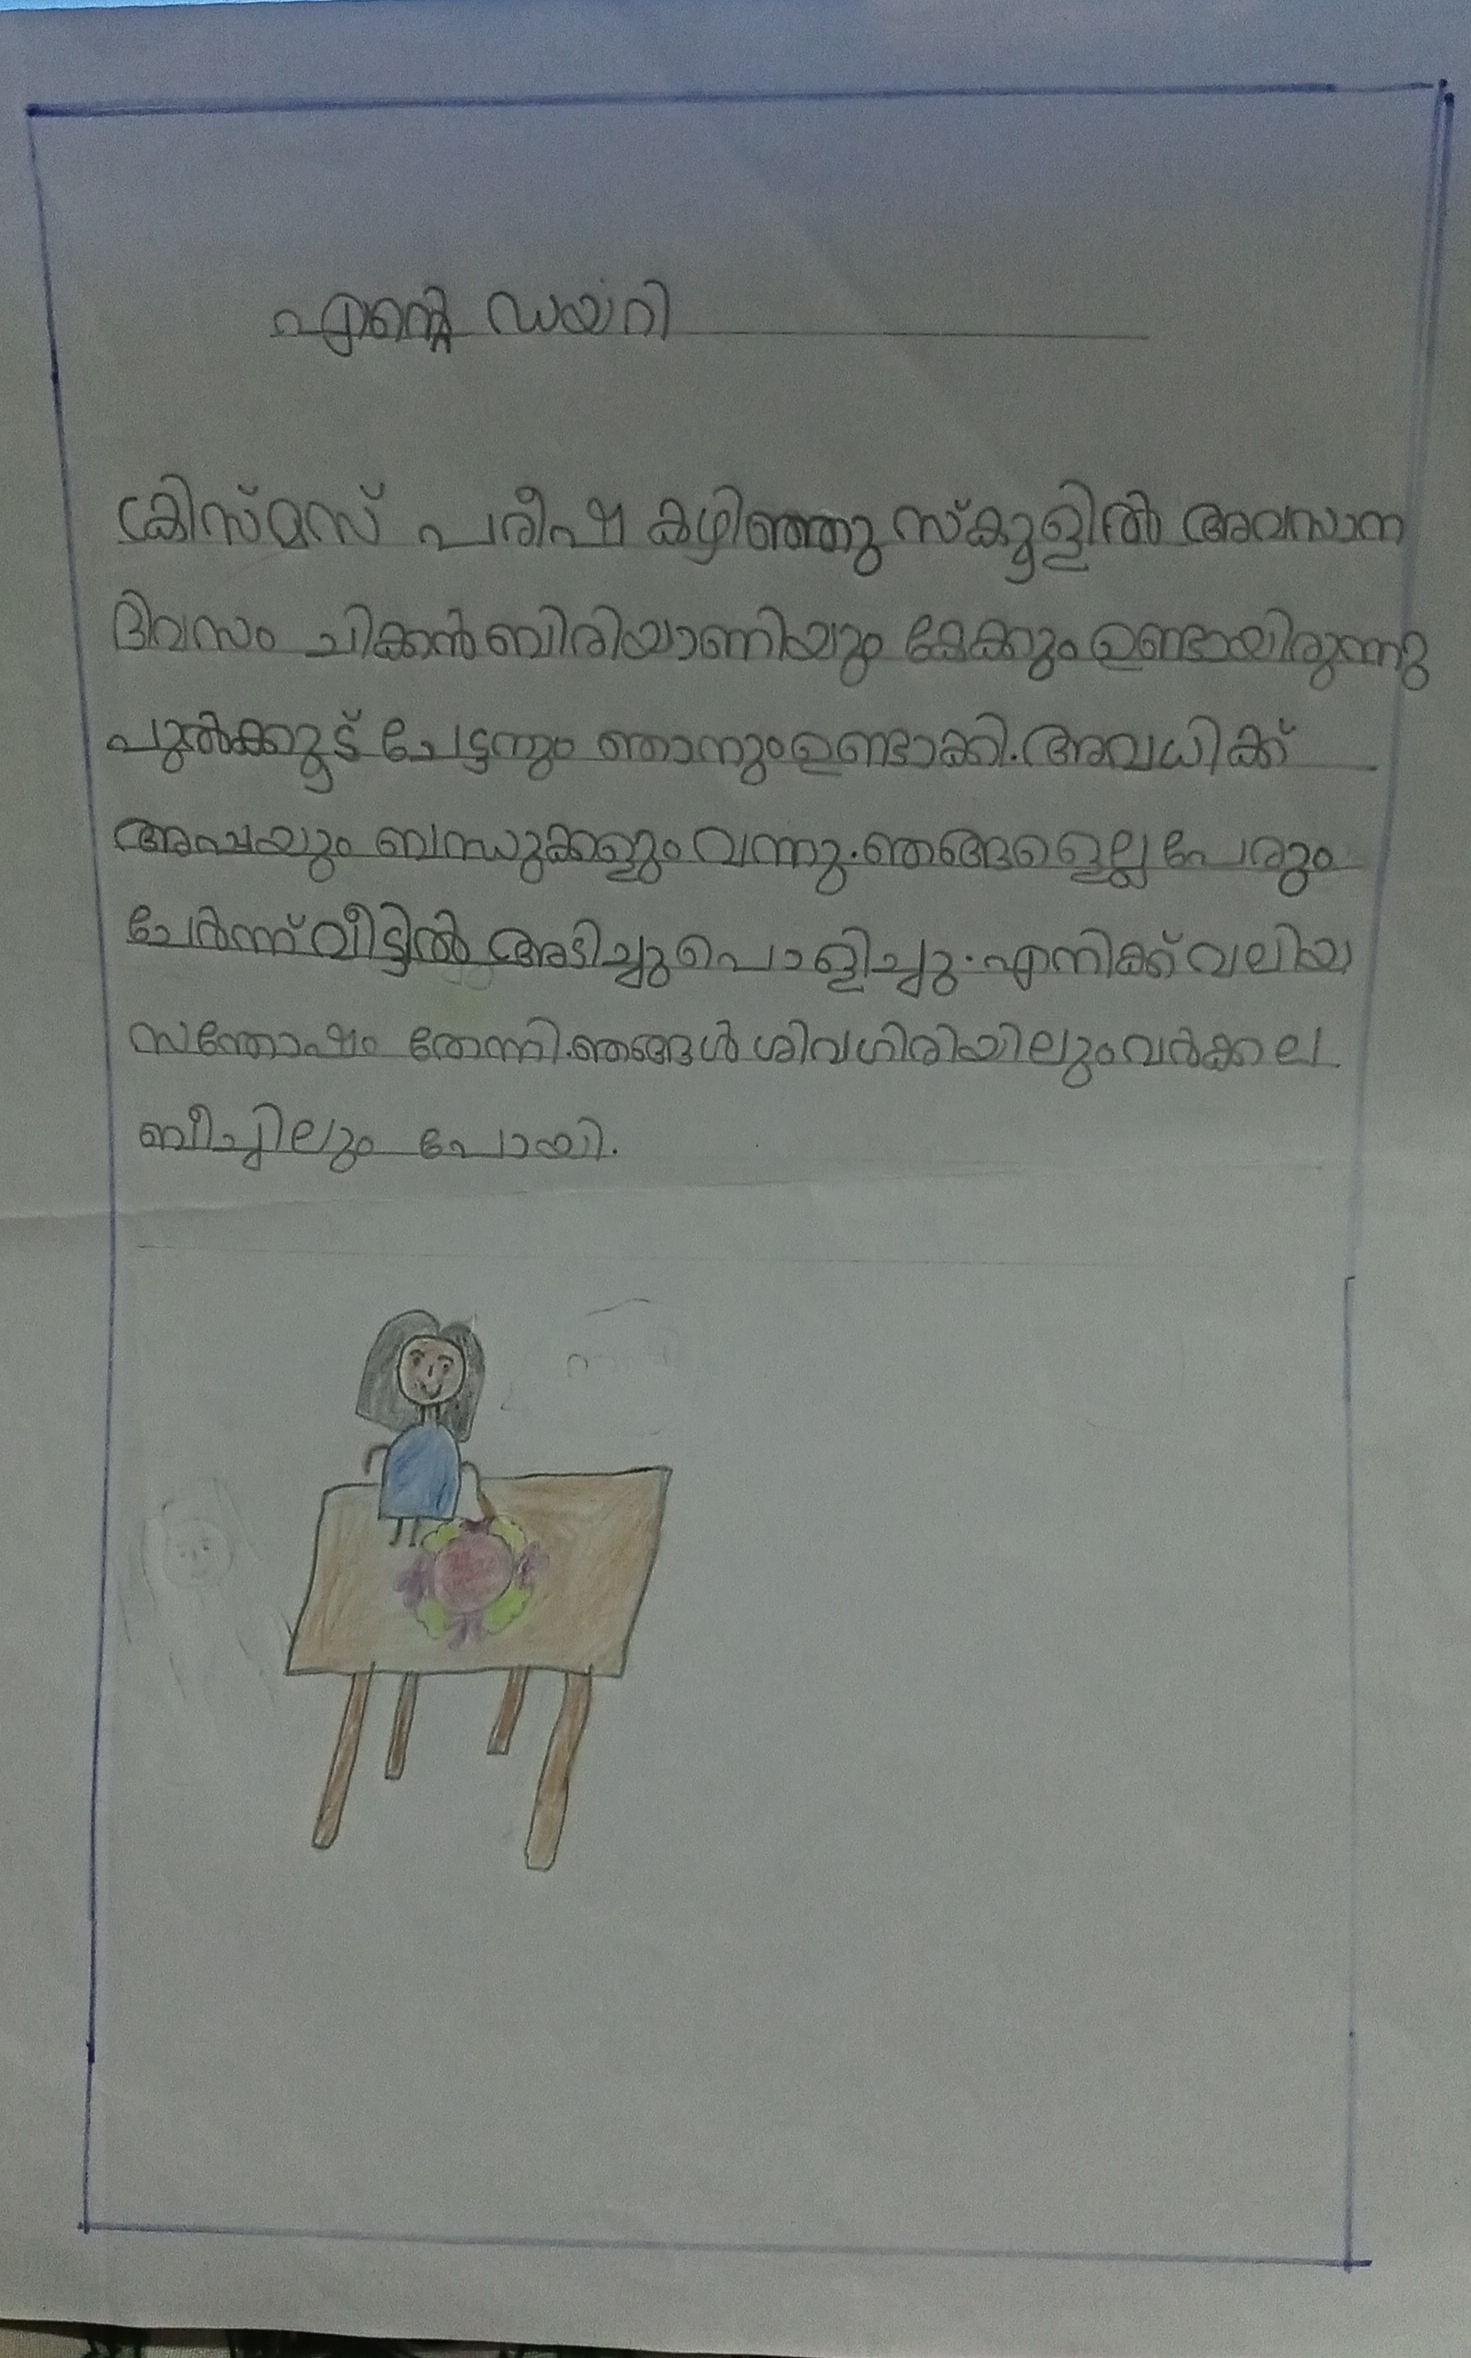 എന്റെ ഡയറി
ക്രിസ്മസ് പരീഷ കഴിഞ്ഞു സ്കൂളിൽ അവസാന
ദിവസം ചിക്കൻ ബിരിയാണിയും കേക്കും ഉണ്ടായിരുന്നു
പുൽക്കൂട് ചേട്ടനും ഞാനും ഉണ്ടാക്കി. അവധിക്ക്
അപ്പയും ബന്ധുക്കളും വന്നു. ഞങ്ങളെല്ല പേരും
ചേർന്ന് വീട്ടിൽ അടിച്ചു പൊളിച്ചു. എനിക്ക് വലിയ
സന്തോഷം തോന്നി. ഞങ്ങൾ ശിവഗിരിയിലും വർക്കല
ബീച്ചിലും പോയി.